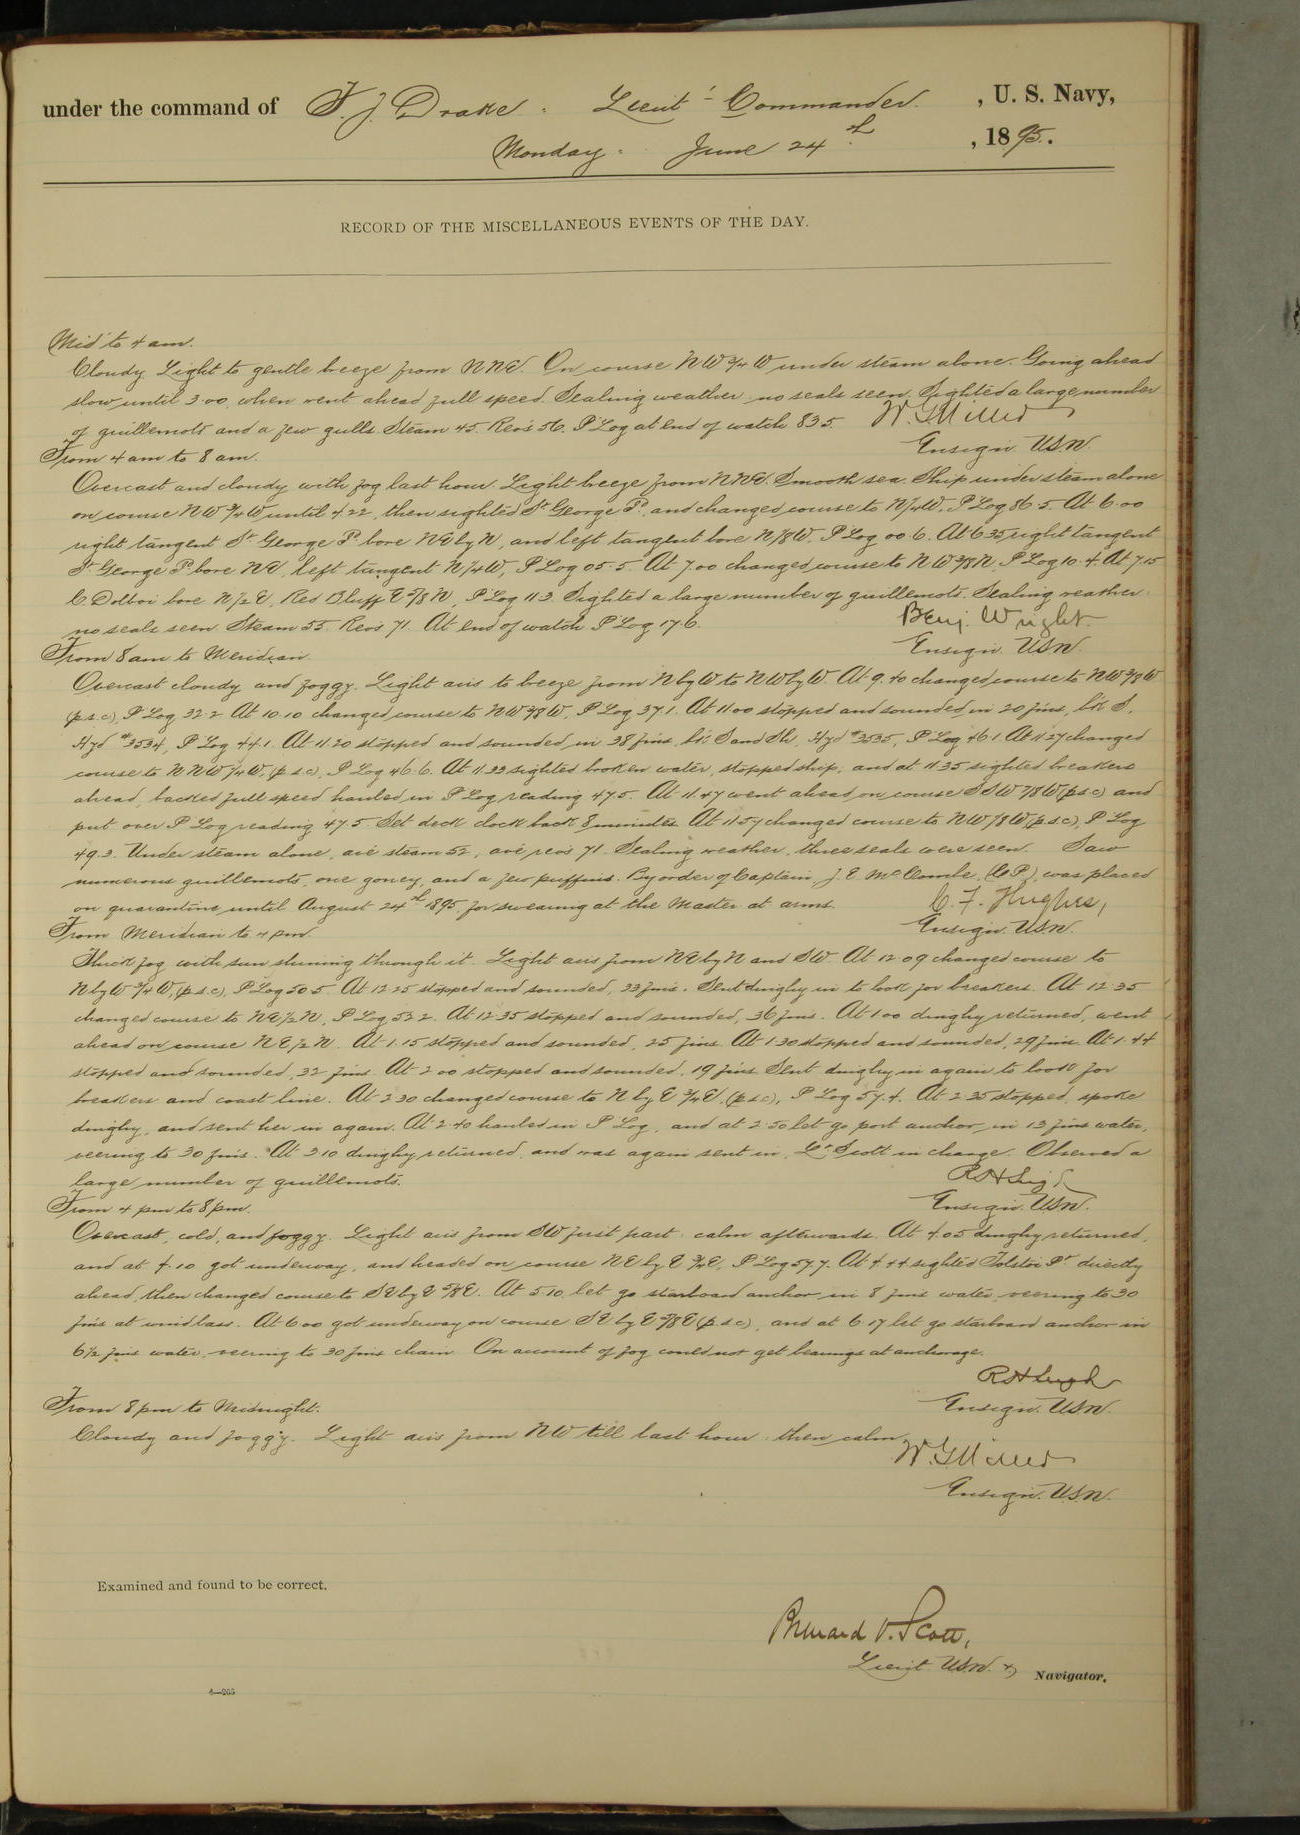 under the command of F. J. Drake. Lieut-Commander. , U. S. Navy,
Monday. June 24th , 1895.
RECORD OF THE MISCELLANEOUS EVENTS OF THE DAY.
Mid to 4 am.
Cloudy. Light to gentle breeze from NNE. On course NW 3/4 W under steam alone. Going ahead
slow until 3.00, when went ahead full speed. Sealing weather no seals seen. Sighted a large number
of guillemots and a few gulls. Steam 45. Revs 56. P Log at end of watch 83.5. W. G. Miller
Ensign USN.
From 4 am to 8 am.
Overcast and cloudy with fog last hour. Light breeze from NNE. Smooth sea. Ship under steam alone
on course NW 3/4 W until 4.22, then sighted St George I. and changed course to N 1/4 W, P Log 86.5. At 6.00
right tangent St George I. bore NE by N, and left tangent bore N 1/8 W. P Log 00.6. At 6.35 right tangent
St George I. bore NE, left tangent N 1/4 W, P Log 05.5. At 7.00 changed course to NW 3/8 N. P Log 10.4. At 7.15
C. Dolboi bore N 1/2 E, Red Bluff E 5/8 N, P Log 11.3. Sighted a large number of guillemots. Sealing weather
no seals seen. Steam 55. Revs 71. At end of watch P Log 17.6.
Benj. Wright.
Ensign USN.
From 8 am to Meridian.
Overcast cloudy and foggy. Light airs to breeze from N by W to NW by W. At 9.40 changed course to NW 7/8 W
(p.s.c.), P Log 32.2. At 10.10 changed course to NW 3/8 W, P Log 37.1. At 11.00 stopped and sounded in 20 fms, bk S.
Hyd #3534, P Log 44.1. At 11.20 stopped and sounded in 28 fms, bk S and Sh, Hyd #3535, P Log 46.1. At 11.27 changed
course to NNW 1/4 W, (p.s.c), P Log 46.6. At 11.33 sighted broken water, stopped ship, and at 11.35 sighted breakers
ahead, backed full speed hauled in P Log reading 47.5. At 11.47 went ahead on course SSW 7/8 W (p.s.c) and
put over P Log reading 47.5. Set deck clock back 8 minutes. At 11.57 changed course to NW 7/8 W (p.s.c), P Log
49.3. Under steam alone, ave steam 52, ave revs 71. Sealing weather, three seals were seen. Saw
numerous guillemots, one goney, and a few puffins. By order of Captain J. E. McCombe, (CP), was placed
on quarantine until August 24th 1895, for swearing at the Master at arms. C. F. Hughes,
Ensign USN.
From Meridian to 4 pm.
Thick fog with sun shining through it. Light airs from NE by N and SW. At 12.09 changed course to
N by W 3/4 W, (p.s.c), P Log 50.5. At 12.25 stopped and sounded, 23 fms. Sent dinghy in to look for breakers. At 12.35
changed course to NE 1/2 N, P Log 52.2. At 12.35 stopped and sounded, 36 fms. At 1.00 dinghy returned, went
ahead on course NE 1/2 N. At 1.15 stopped and sounded, 25 fms. At 1.30 stopped and sounded, 29 fms. At 1.44
stopped and sounded, 32 fms. At 2.00 stopped and sounded, 19 fms. Sent dinghy in again to look for
breakers and coast line. At 2.30 changed course to N by E 3/4 E, (p.s.c), P Log 57.4. At 2.35 stopped, spoke
dinghy, and sent her in again. At 2.40 hauled in P Log, and at 2.50 let go port anchor in 13 fms water,
veering to 30 fms. At 3.10 dinghy returned, and was again sent in, Lt Scott in charge. Observed a
large number of guillemots.
R H Leigh
Ensign USN.
From 4 pm to 8 pm.
Overcast, cold, and foggy. Light airs from SW first part, calm afterwards. At 4.05 dinghy returned,
and at 4.10 got underway, and headed on course NE by E 3/4 E, P Log 57.7. At 4.44 sighted Tolstoi Pt directly
ahead, then changed course to SE by E 5/8 E. At 5.10 let go starboard anchor in 8 fms water, veering to 30
fms at windlass. At 6.00 got underway on course SE by E 3/8 E (p.s.c), and at 6.17 let go starboard anchor in
6 1/2 fms water, veering to 30 fms chain. On account of fog could not get bearings at anchorage.
R H Leigh
Ensign. USN.
From 8 pm to Midnight.
Cloudy and foggy. Light airs from NW till last hour, then calm.
W. G. Miller
Ensign. USN.
Examined and found to be correct.
Bernard O. Scott,
Lieut. USN. & Navigator.